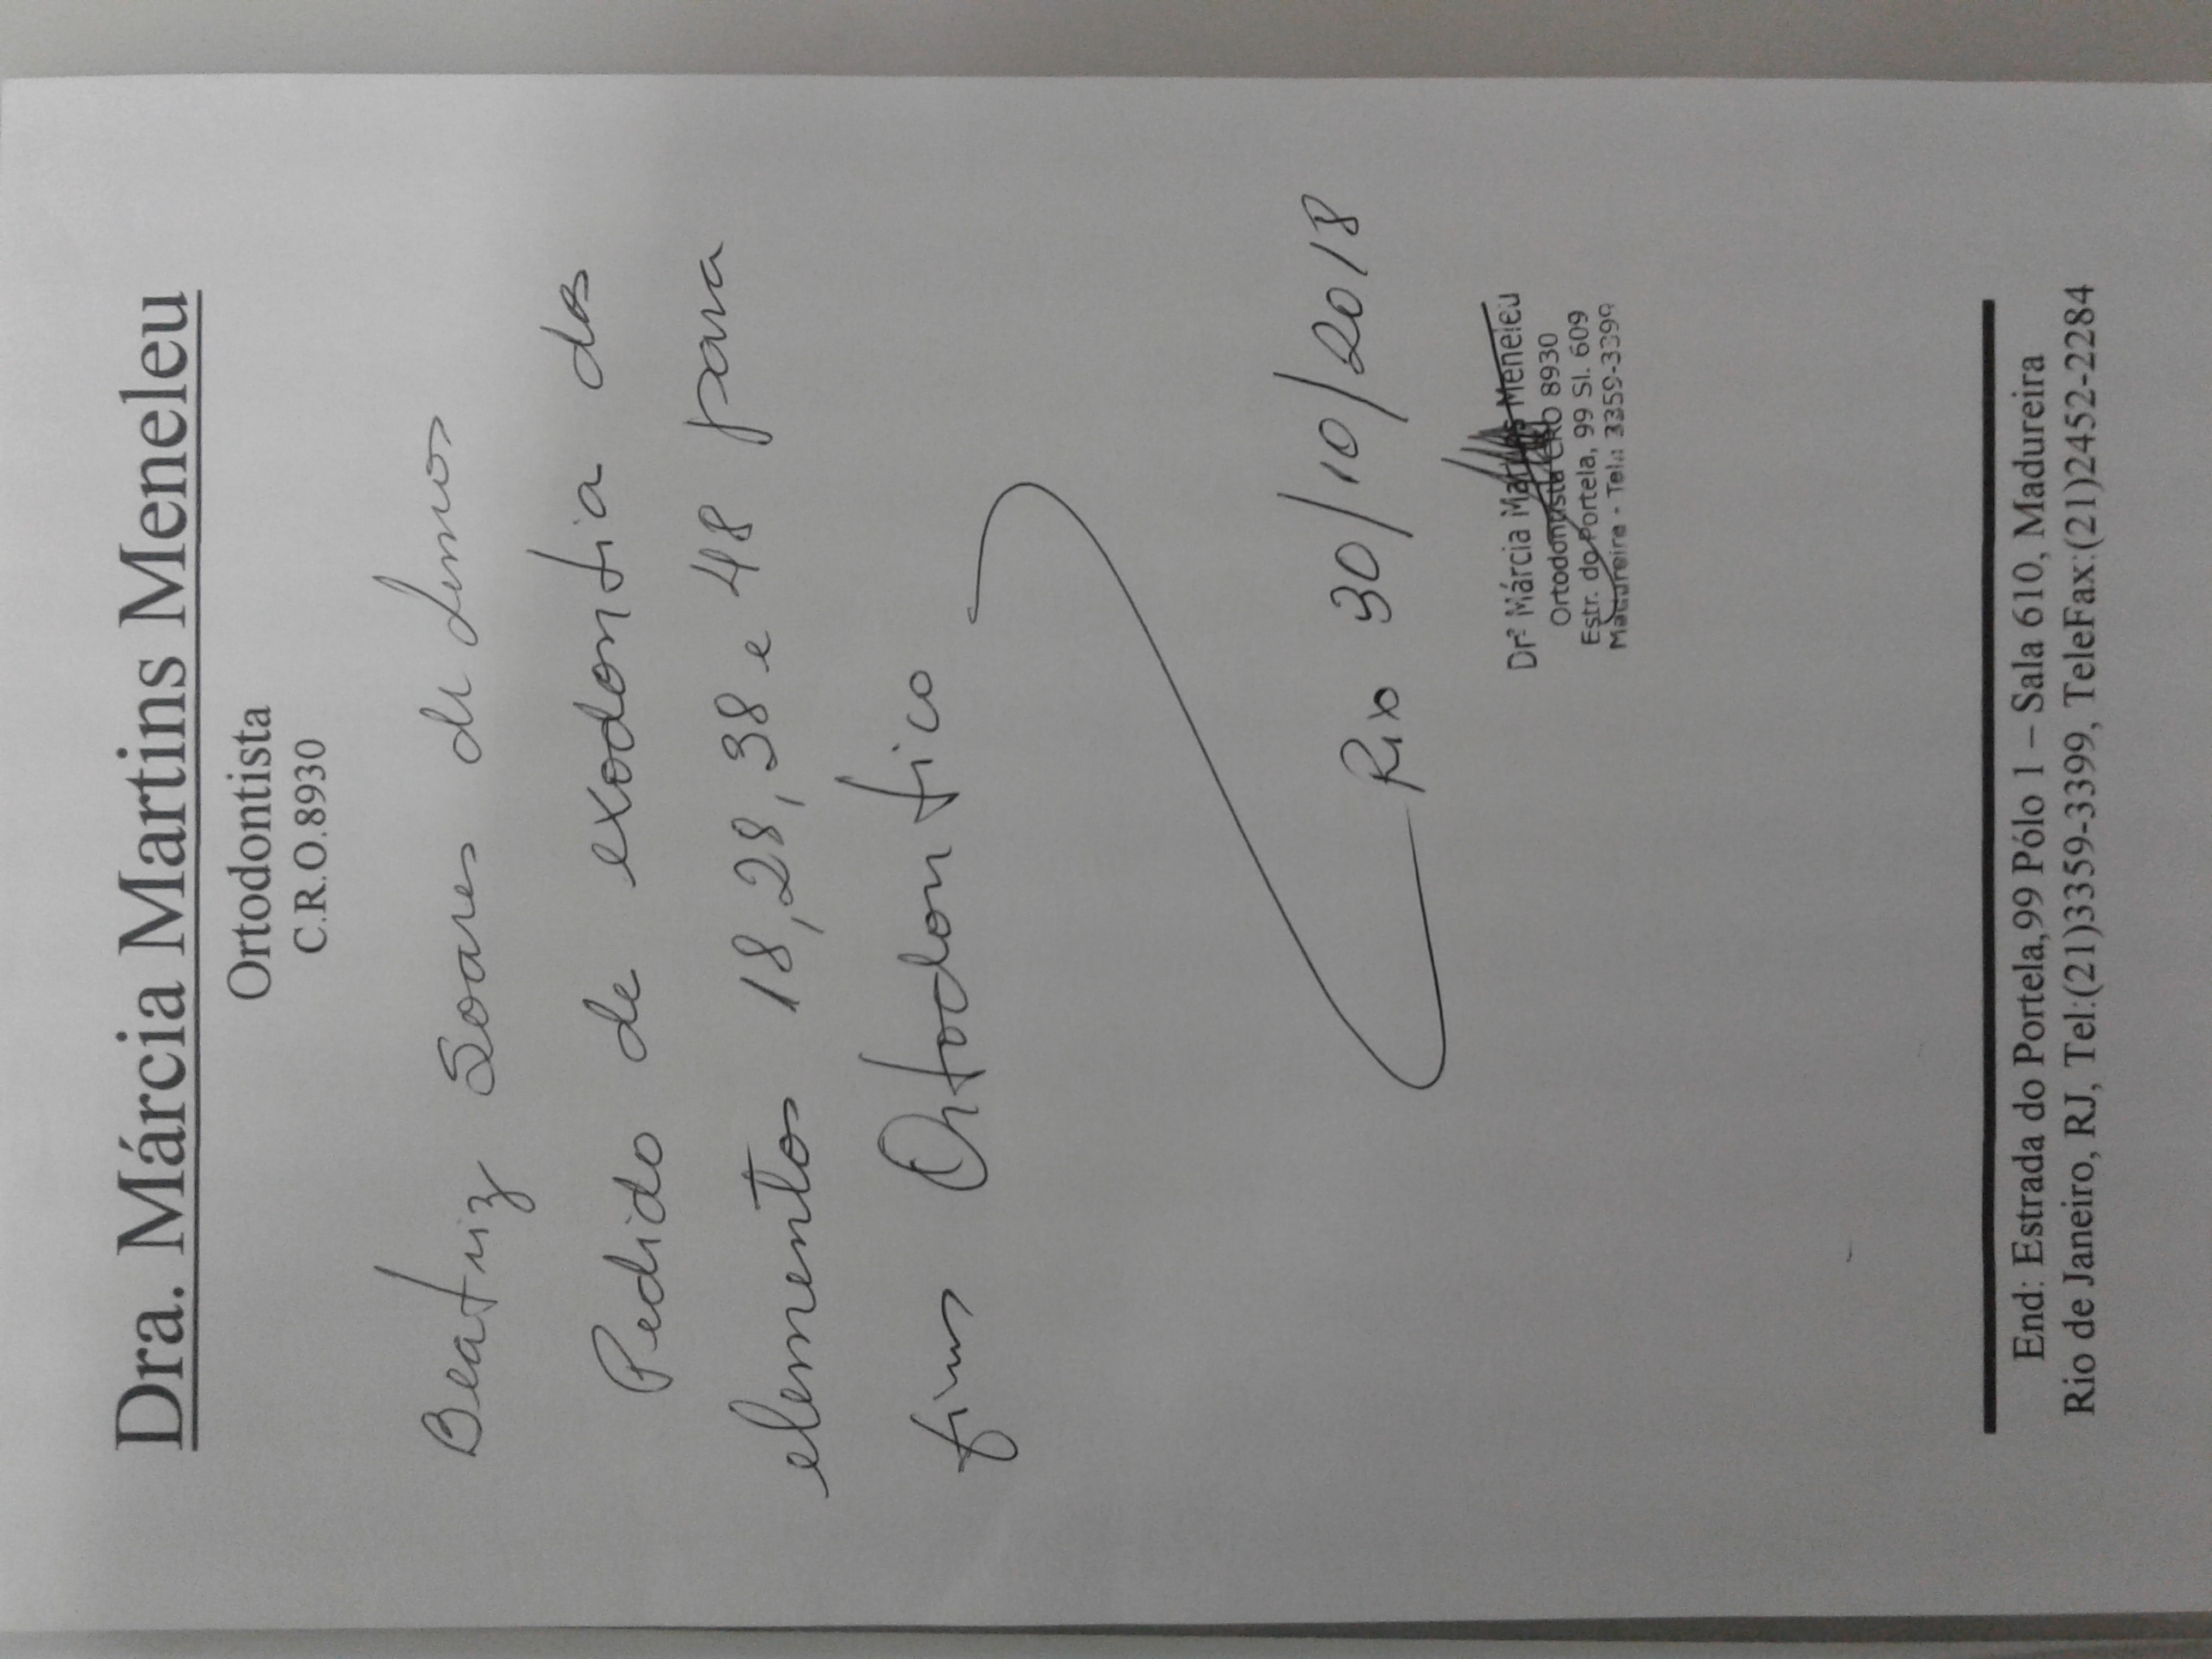 Dra. Márcia Martins Meneleu
Ortodontista
C.R.O.8930
Beatriz Soares de Lemos
Pedido de exodontia dos
elementos 18, 28, 38 e 48 para
fins Ortodontico
Rio 30/10/2018
Drª Márcia Martins Meneleu
Ortodontista CRO 8930
Estr. do Portela, 99 Sl. 609
Madureira - Tel.: 3359-3399
End: Estrada do Portela,99 Pólo 1 – Sala 610, Madureira
Rio de Janeiro, RJ, Tel:(21)3359-3399, TeleFax:(21)2452-2284